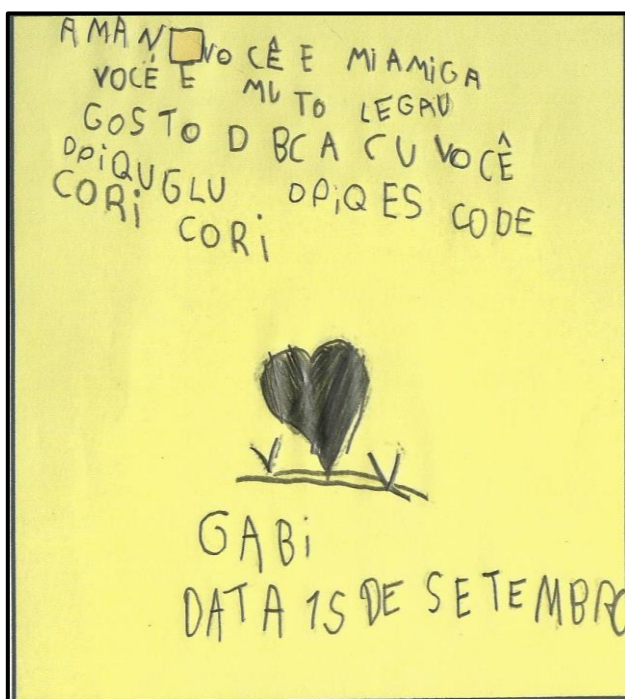 AMAN VOCÊ E MIAMIGA
VOCÊ E MUTO LEGAU
GOSTO D BCA CU VOCÊ
DPiQUGLU DPiQES CODE
CORi CORi
GABi
DATA 15 DE SETEMBRO